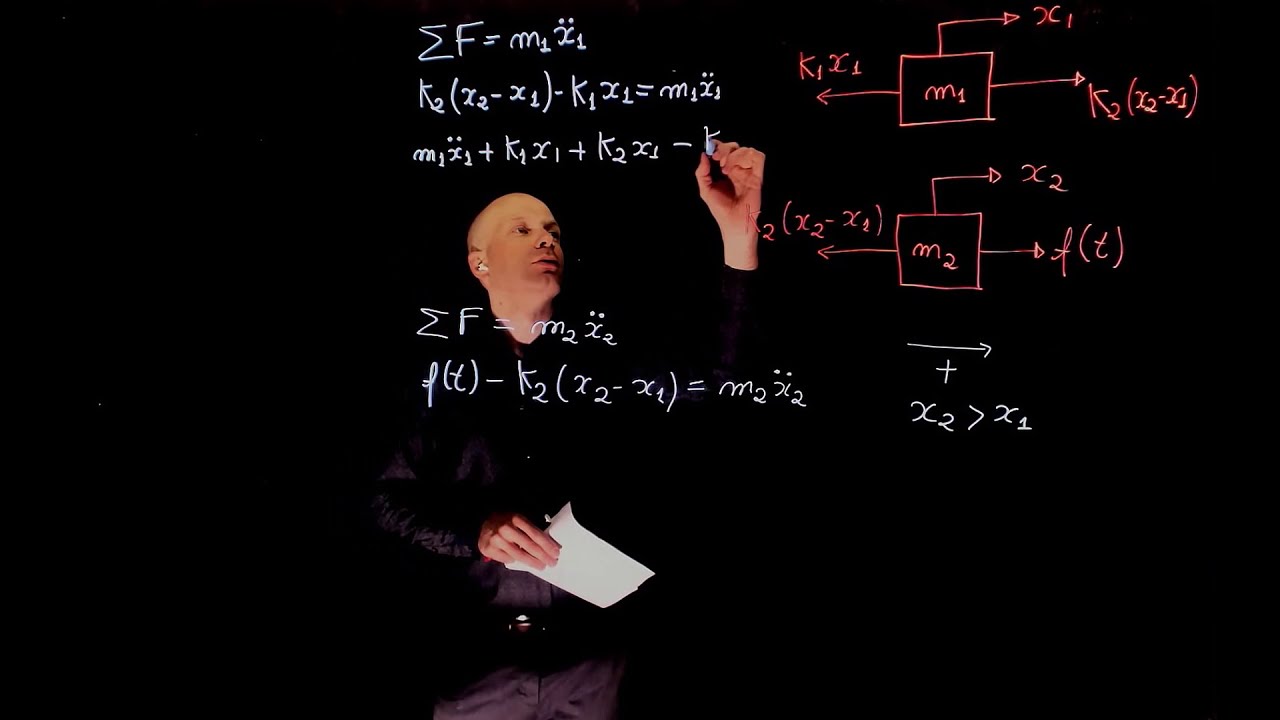 ΣF = m₁ẍ₁
k₂(x₂-x₁)-k₁x₁=m₁ẍ₁
m₁ẍ₁+k₁x₁+k₂x₁-k
ΣF = m₂ẍ₂
f(t)-k₂(x₂-x₁)=m₂ẍ₂
x₁
k₁x₁
m₁
k₂(x₂-x₁)
x₂
k₂(x₂-x₁)
m₂
f(t)
+
x₂>x₁